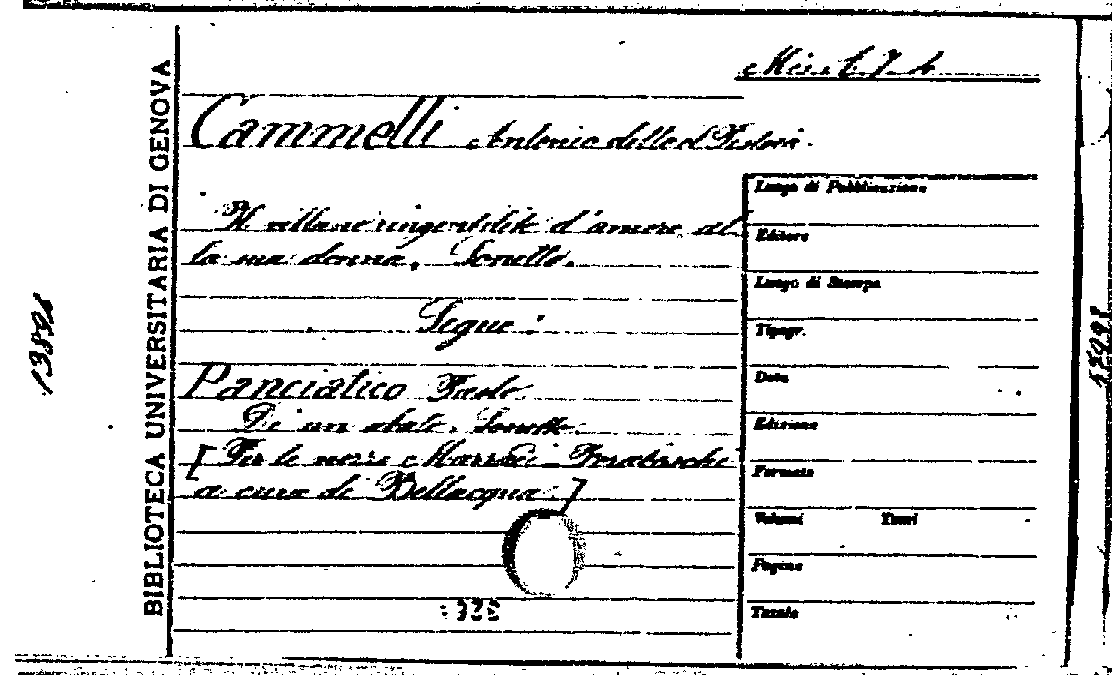 Misc. A. 7. 4
Cammelli Antonio detto il Pistoia.
Il villano ringentilito d'amore al-
la sua donna. Sonetto.
Segue:
Panciatico Paolo
Di un abate. Sonetto.
[Per le nozze
a cura di Bellacqua.]
BIBLIOTECA UNIVERSITARIA DI GENOVA
Luogo di Pubblicazione
Editore
Luogo di Stampa
Tipogr.
Data
Edizione
Formato
Volumi Tomi
Pagine
Tavole